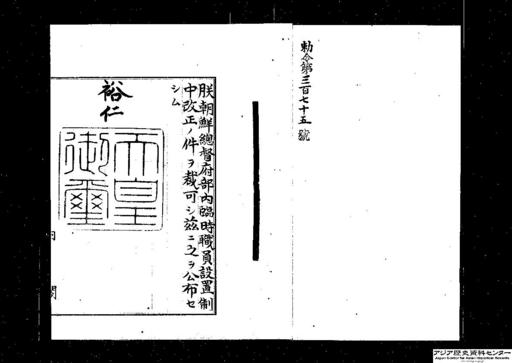 勅令第三百七十五號
朕朝鮮總督府部內臨時職員設置制
中改正ノ件ヲ裁可シ茲ニ之ヲ公布セ
シム
裕仁
天皇
御璽
閣
アジア歴史資料センター
Japan Center for Asian Historical Records